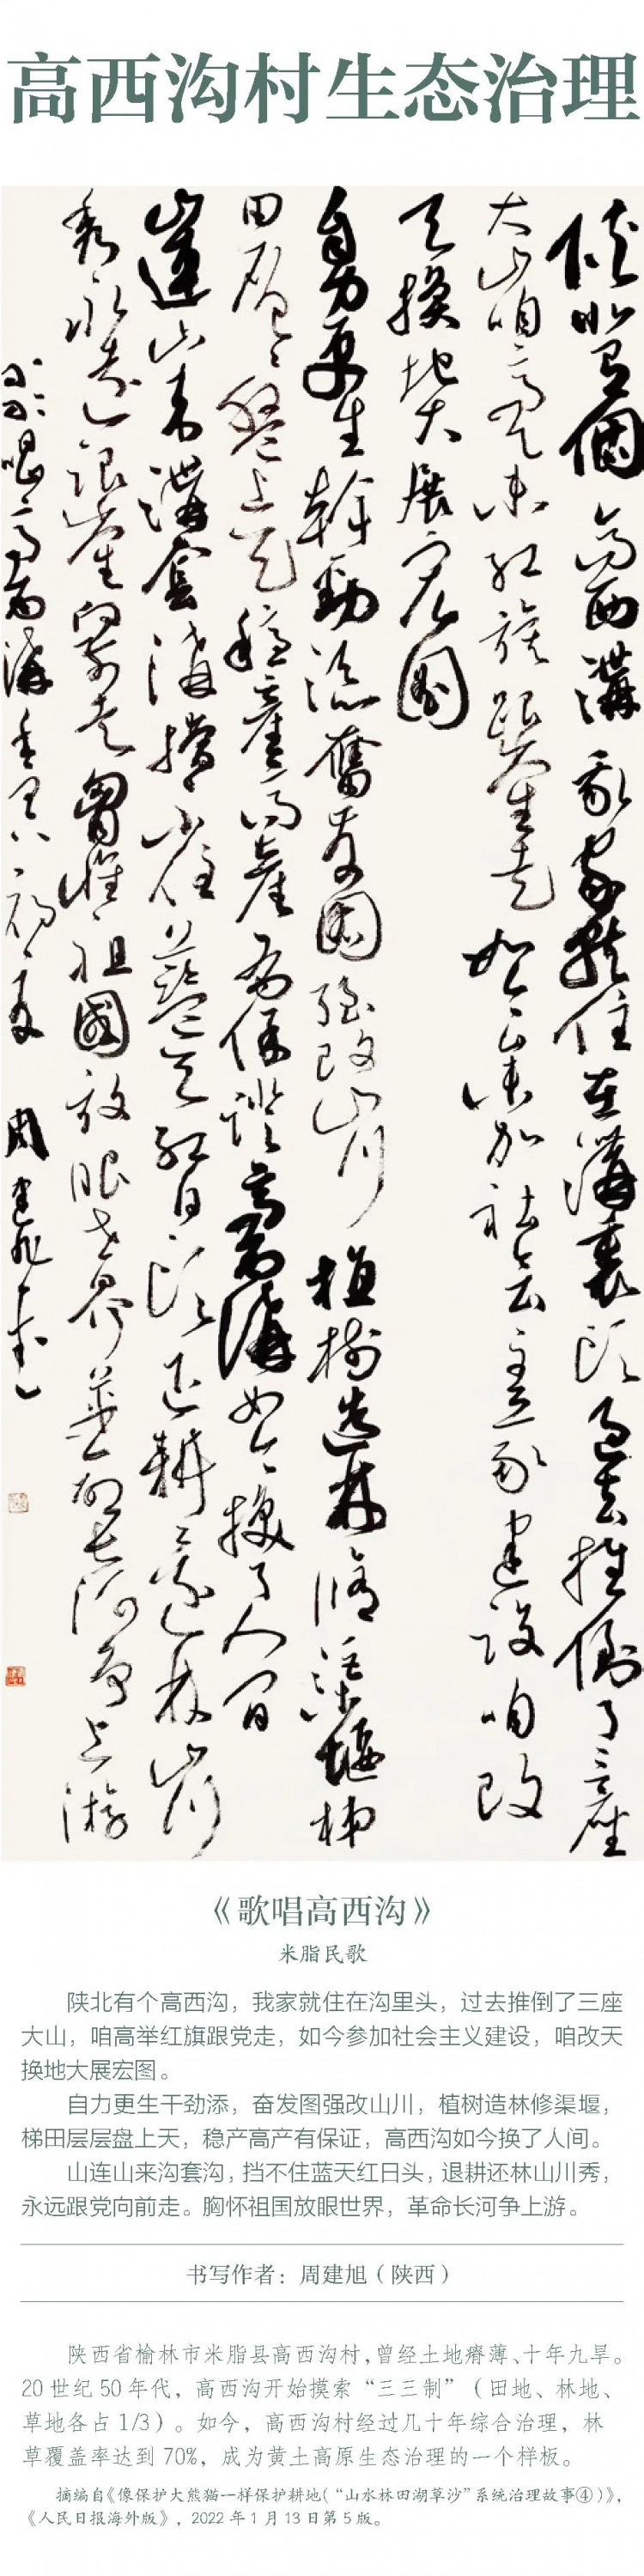 高西沟村生态治理
陕北有個高西溝我家就住在溝裏头過去推倒了三座
大山咱高举红旗跟党走如今参加社会主义建设咱改
天换地大展宏图
自力更生幹勁添奮发图强改山川植树造林修渠堰梯
田层层盘上天稳產高產有保證高西溝如今换了人间
山連山来溝套溝擋不住蓝天红日头退耕还林山川
秀永远跟党向前走胸怀祖國放眼世界革命长河争上游
歌唱高西溝 周建旭
《歌唱高西沟》
米脂民歌
陕北有个高西沟，我家就住在沟里头，过去推倒了三座
大山，咱高举红旗跟党走，如今参加社会主义建设，咱改天
换地大展宏图。
自力更生干劲添，奋发图强改山川，植树造林修渠堰，
梯田层层盘上天，稳产高产有保证，高西沟如今换了人间。
山连山来沟套沟，挡不住蓝天红日头，退耕还林山川秀，
永远跟党向前走。胸怀祖国放眼世界，革命长河争上游。
书写作者：周建旭（陕西）
陕西省榆林市米脂县高西沟村，曾经土地瘠薄、十年九旱。
20世纪50年代，高西沟开始摸索“三三制”（田地、林地、
草地各占1/3）。如今，高西沟村经过几十年综合治理，林
草覆盖率达到70%，成为黄土高原生态治理的一个样板。
摘编自《像保护大熊猫一样保护耕地（“山水林田湖草沙”系统治理故事④）》，
《人民日报海外版》，2022年1月13日第5版。